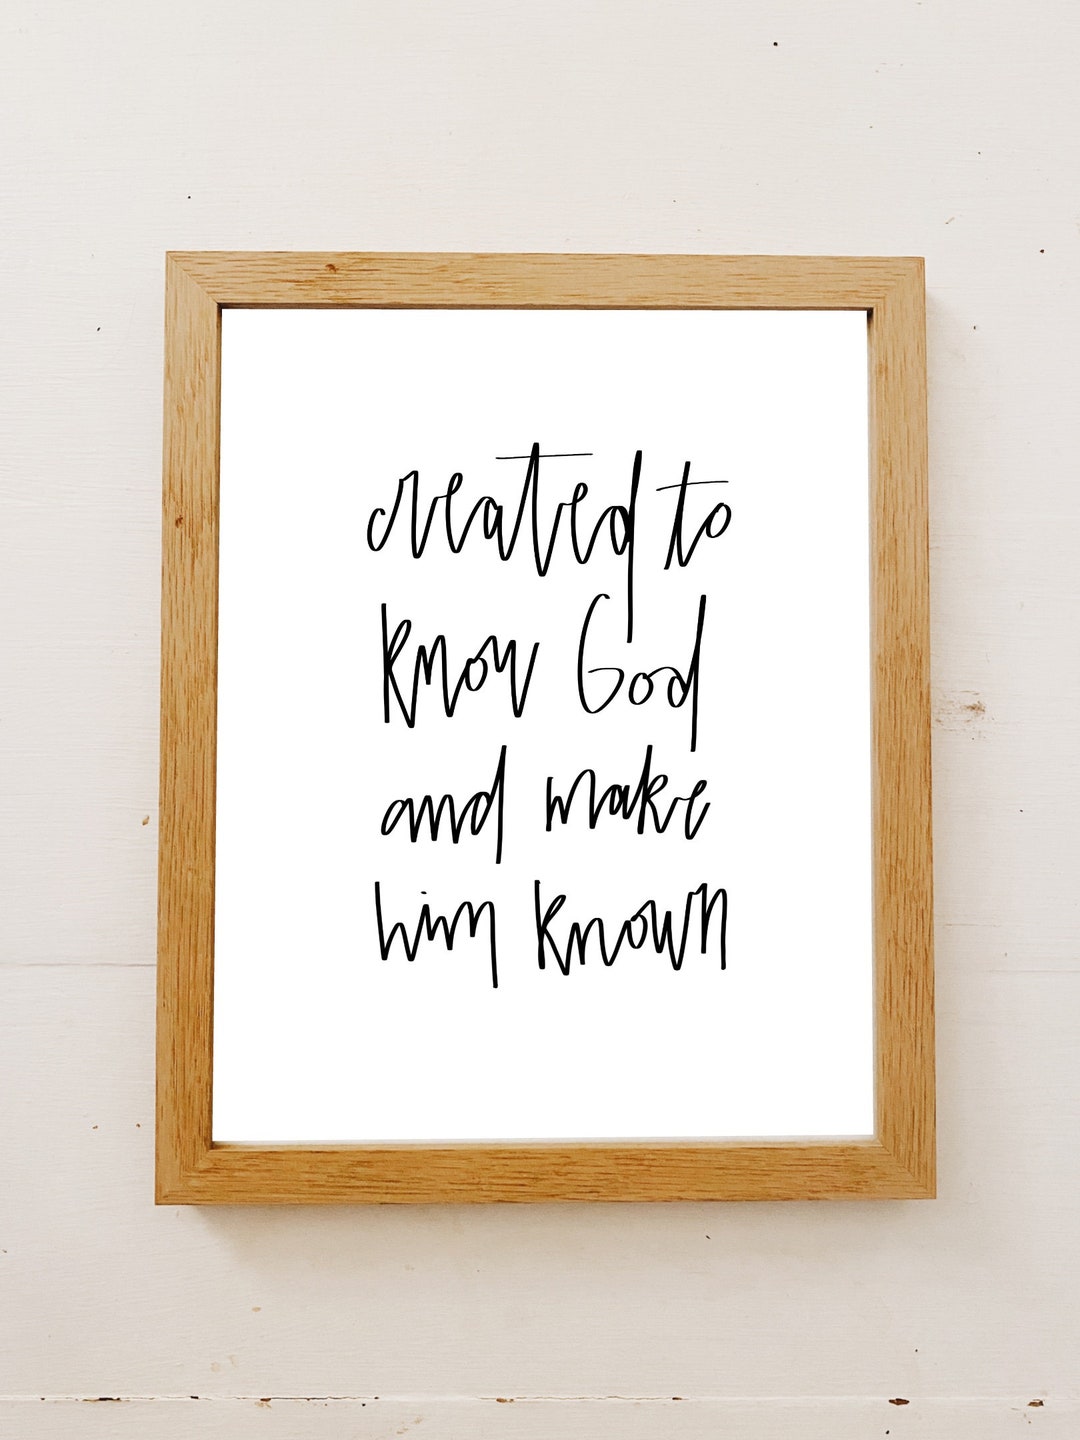 created to
know God
and make
him known